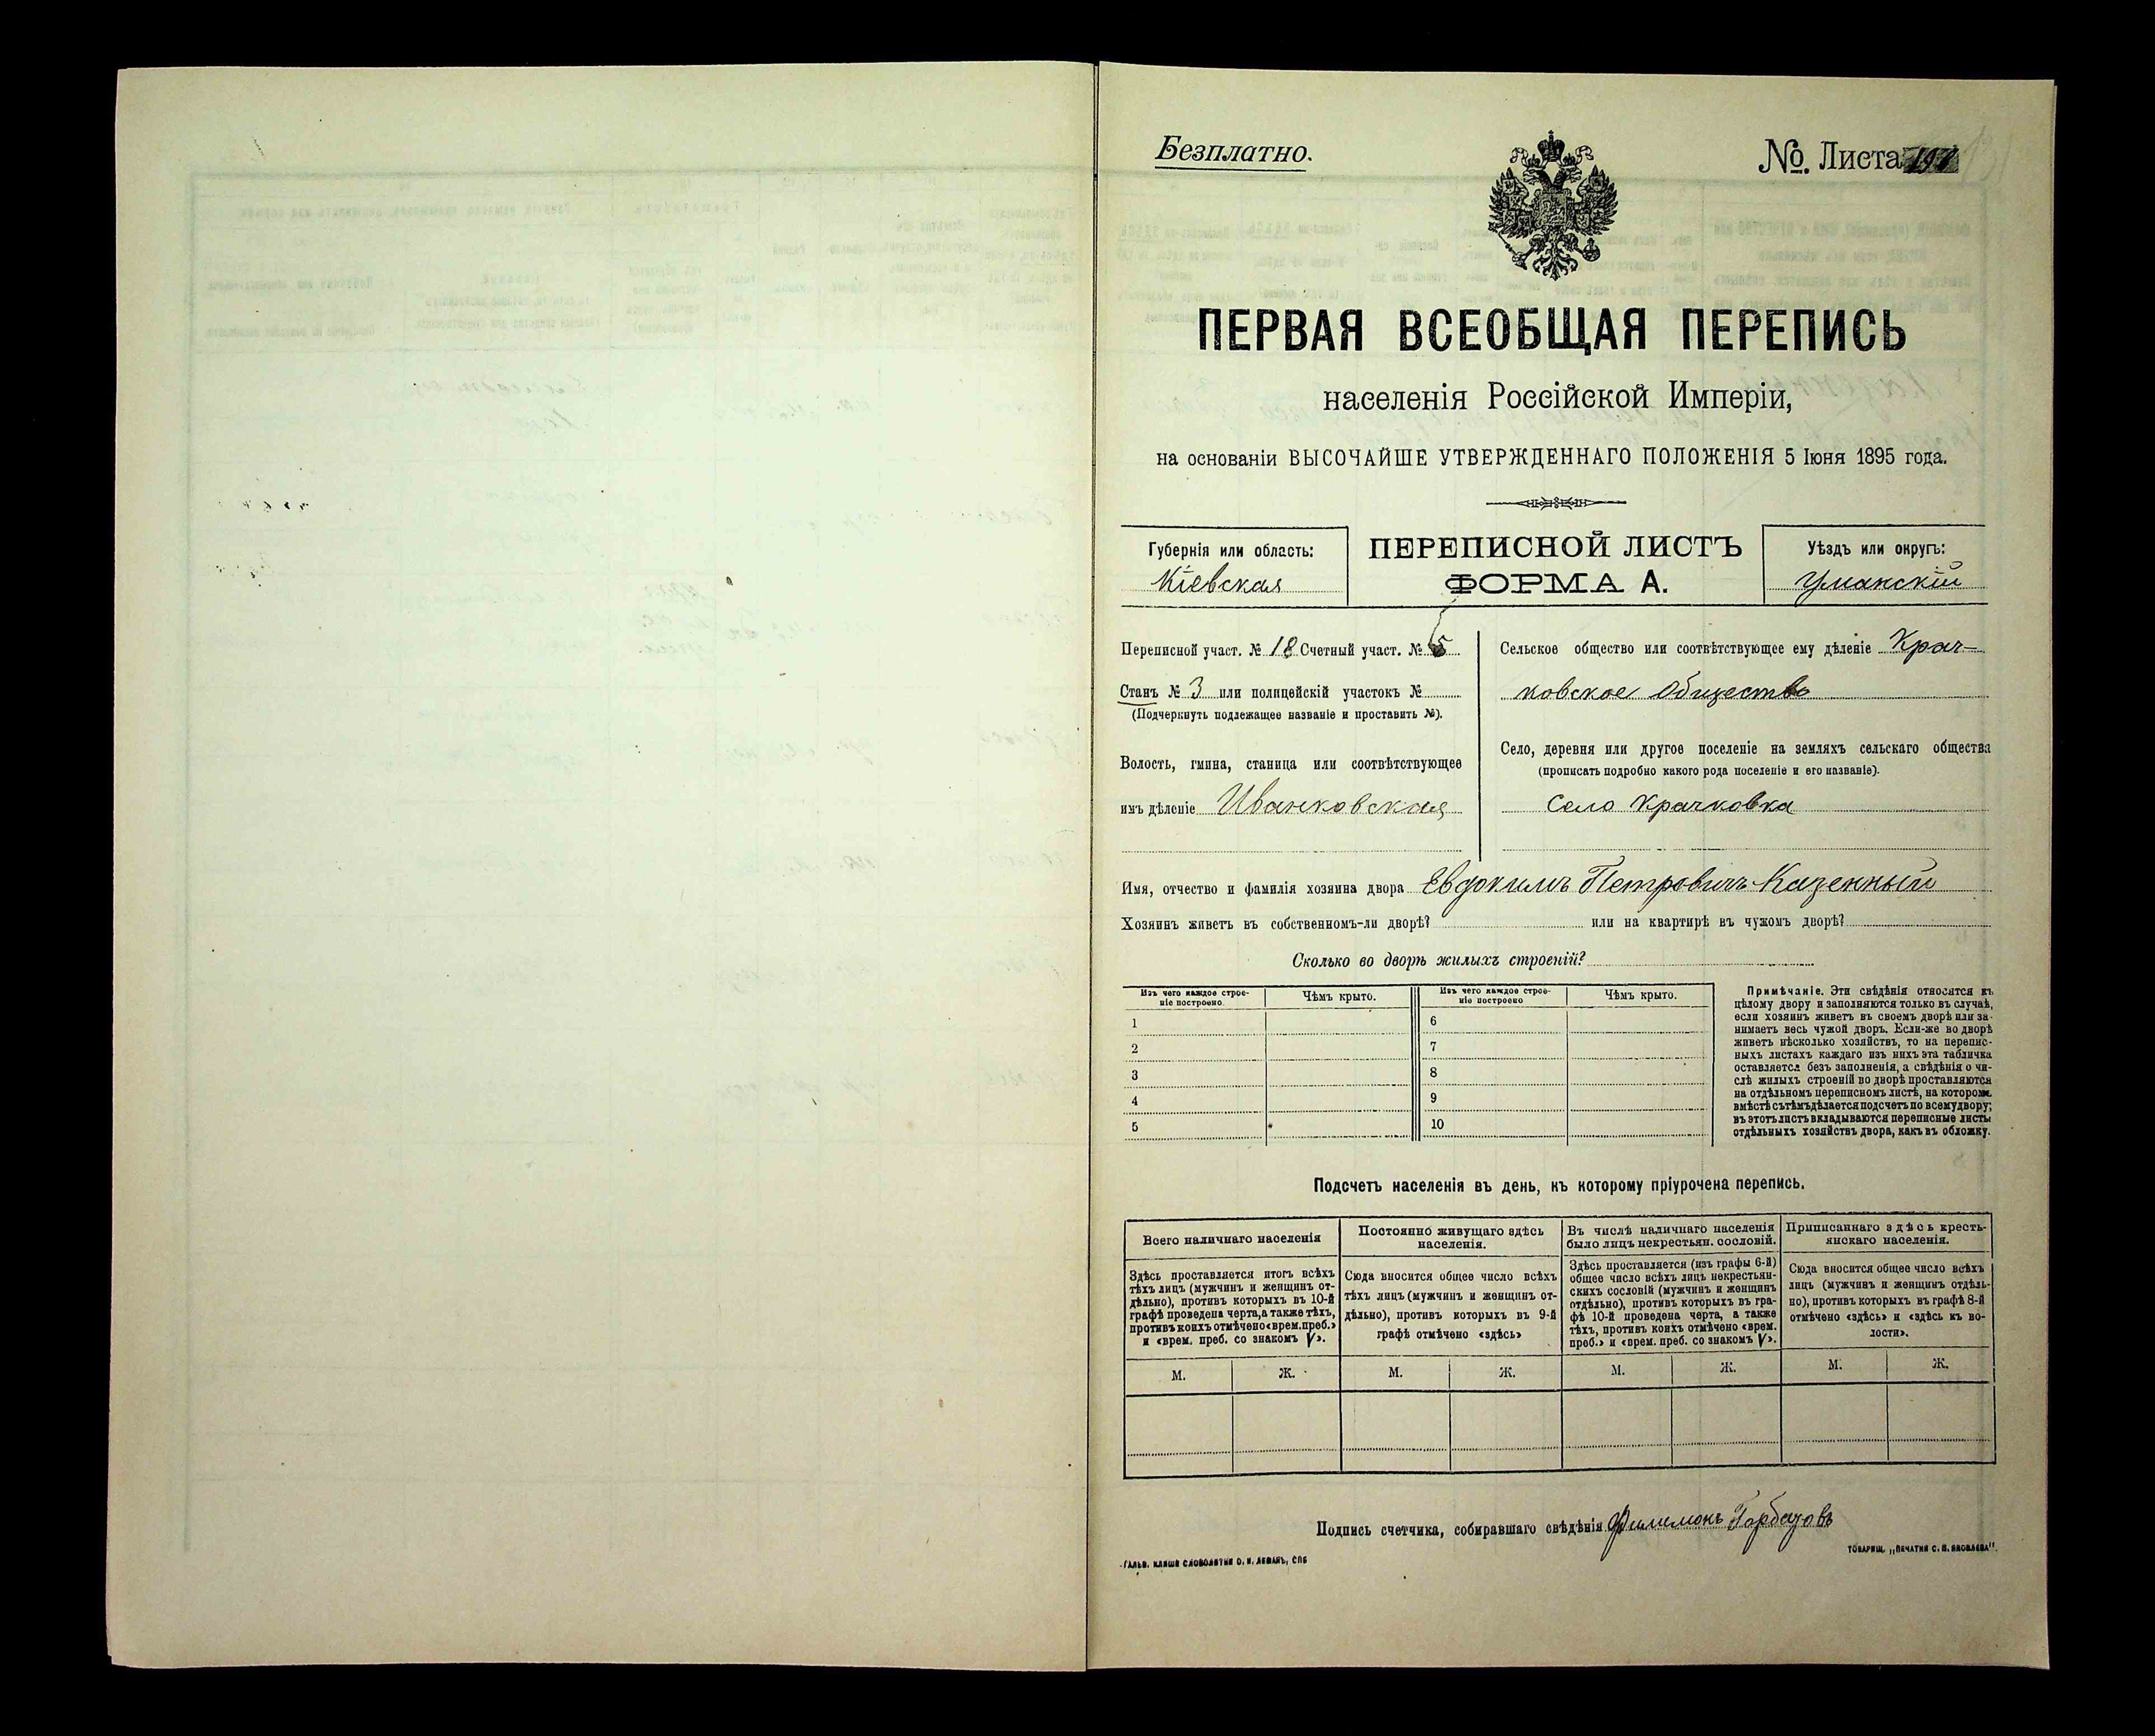 Безплатно.
№ Листа
ПЕРВАЯ ВСЕОБЩАЯ ПЕРЕПИСЬ
населенія Россійской Имперіи,
на основаніи ВЫСОЧАЙШЕ УТВЕРЖДЕННАГО ПОЛОЖЕНІЯ 5 Іюня 1895 года.
Губернія или область:
Кіевская
ПЕРЕПИСНОЙ ЛИСТЪ
ФОРМА А.
Уѣздъ или округъ:
Уманскій
Переписной участ. № 18 Счетный участ. № 5
Станъ № 3 или полицейскій участокъ №
(Подчеркнуть подлежащее названіе и проставить №).
Волость, гмина, станица или соотвѣтствующее
имъ дѣленіе Иванковская
Сельское общество или соотвѣтствующее ему дѣленіе Крач-
ковское Общество
Село, деревня или другое поселеніе на земляхъ сельскаго общества
(прописать подробно какого рода поселеніе и его названіе).
Село Крачковка
Имя, отчество и фамилія хозяина двора Евдокимъ Петровичъ Казенный
Хозяинъ живетъ въ собственномъ-ли дворѣ? или на квартирѣ въ чужомъ дворѣ?
Сколько во дворѣ жилыхъ строеній?
Изъ чего каждое строе-
ніе построено.
Чѣмъ крыто.
Изъ чего каждое строе-
ніе построено
Чѣмъ крыто.
1 6
2 7
3 8
4 9
5 10
Примѣчаніе. Эти свѣдѣнія относятся къ
цѣлому двору и заполняются только въ случаѣ,
если хозяинъ живетъ въ своемъ дворѣ или за-
нимаетъ весь чужой дворъ. Если-же во дворѣ
живетъ нѣсколько хозяйствъ, то на перепис-
ныхъ листахъ каждаго изъ нихъ эта табличка
оставляется безъ заполненія, а свѣдѣнія о чи-
слѣ жилыхъ строеній во дворѣ проставляются
на отдѣльномъ переписномъ листѣ, на которомъ
вмѣстѣ съ тѣмъ дѣлается подсчетъ по всему двору;
въ этотъ листъ вкладываются переписные листы
отдѣльныхъ хозяйствъ двора, какъ въ обложку.
Подсчетъ населенія въ день, къ которому пріурочена перепись.
Всего наличнаго населенія
Здѣсь проставляется итогъ всѣхъ
тѣхъ лицъ (мужчинъ и женщинъ от-
дѣльно), противъ которыхъ въ 10-й
графѣ проведена черта, а также тѣхъ,
противъ коихъ отмѣчено «врем. преб.»
и «врем. преб. со знакомъ V».
Постоянно живущаго здѣсь
населенія.
Сюда вносится общее число всѣхъ
тѣхъ лицъ (мужчинъ и женщинъ от-
дѣльно), противъ которыхъ въ 9-й
графѣ отмѣчено «здѣсь»
Въ числѣ наличнаго населенія
было лицъ некрестьян. сословій.
Здѣсь проставляется (изъ графы 6-й)
общее число всѣхъ лицъ некрестьян-
скихъ сословій (мужчинъ и женщинъ
отдѣльно), противъ которыхъ въ гра-
фѣ 10-й проведена черта, а также
тѣхъ, противъ коихъ отмѣчено «врем.
преб.» и «врем. преб. со знакомъ V».
Приписаннаго здѣсь кресть-
янскаго населенія.
Сюда вносится общее число всѣхъ
лицъ (мужчинъ и женщинъ отдѣль-
но), противъ которыхъ въ графѣ 8-й
отмѣчено «здѣсь» и «здѣсь къ во-
лости».
М. Ж. М. Ж. М. Ж. М. Ж.
Подпись счетчика, собиравшаго свѣдѣнія Филимонъ
ГАЛЬВ. КЛИШЕ СЛОВОЛИТНИ О. И. ЛЕМАНЪ, СПБ
ТОВАРИЩ. „ПЕЧАТНЯ С. П. ЯКОВЛЕВА".